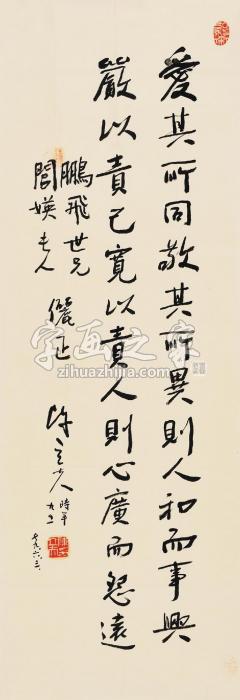 愛其所同敬其所異則人和而事興
嚴以責己寬以責人則心廣而怨遠
鵬飛世兄
閻媖夫人
儷正
陳立夫
時年九二
七九、六、三、
字画之家
zihuazhijia.com